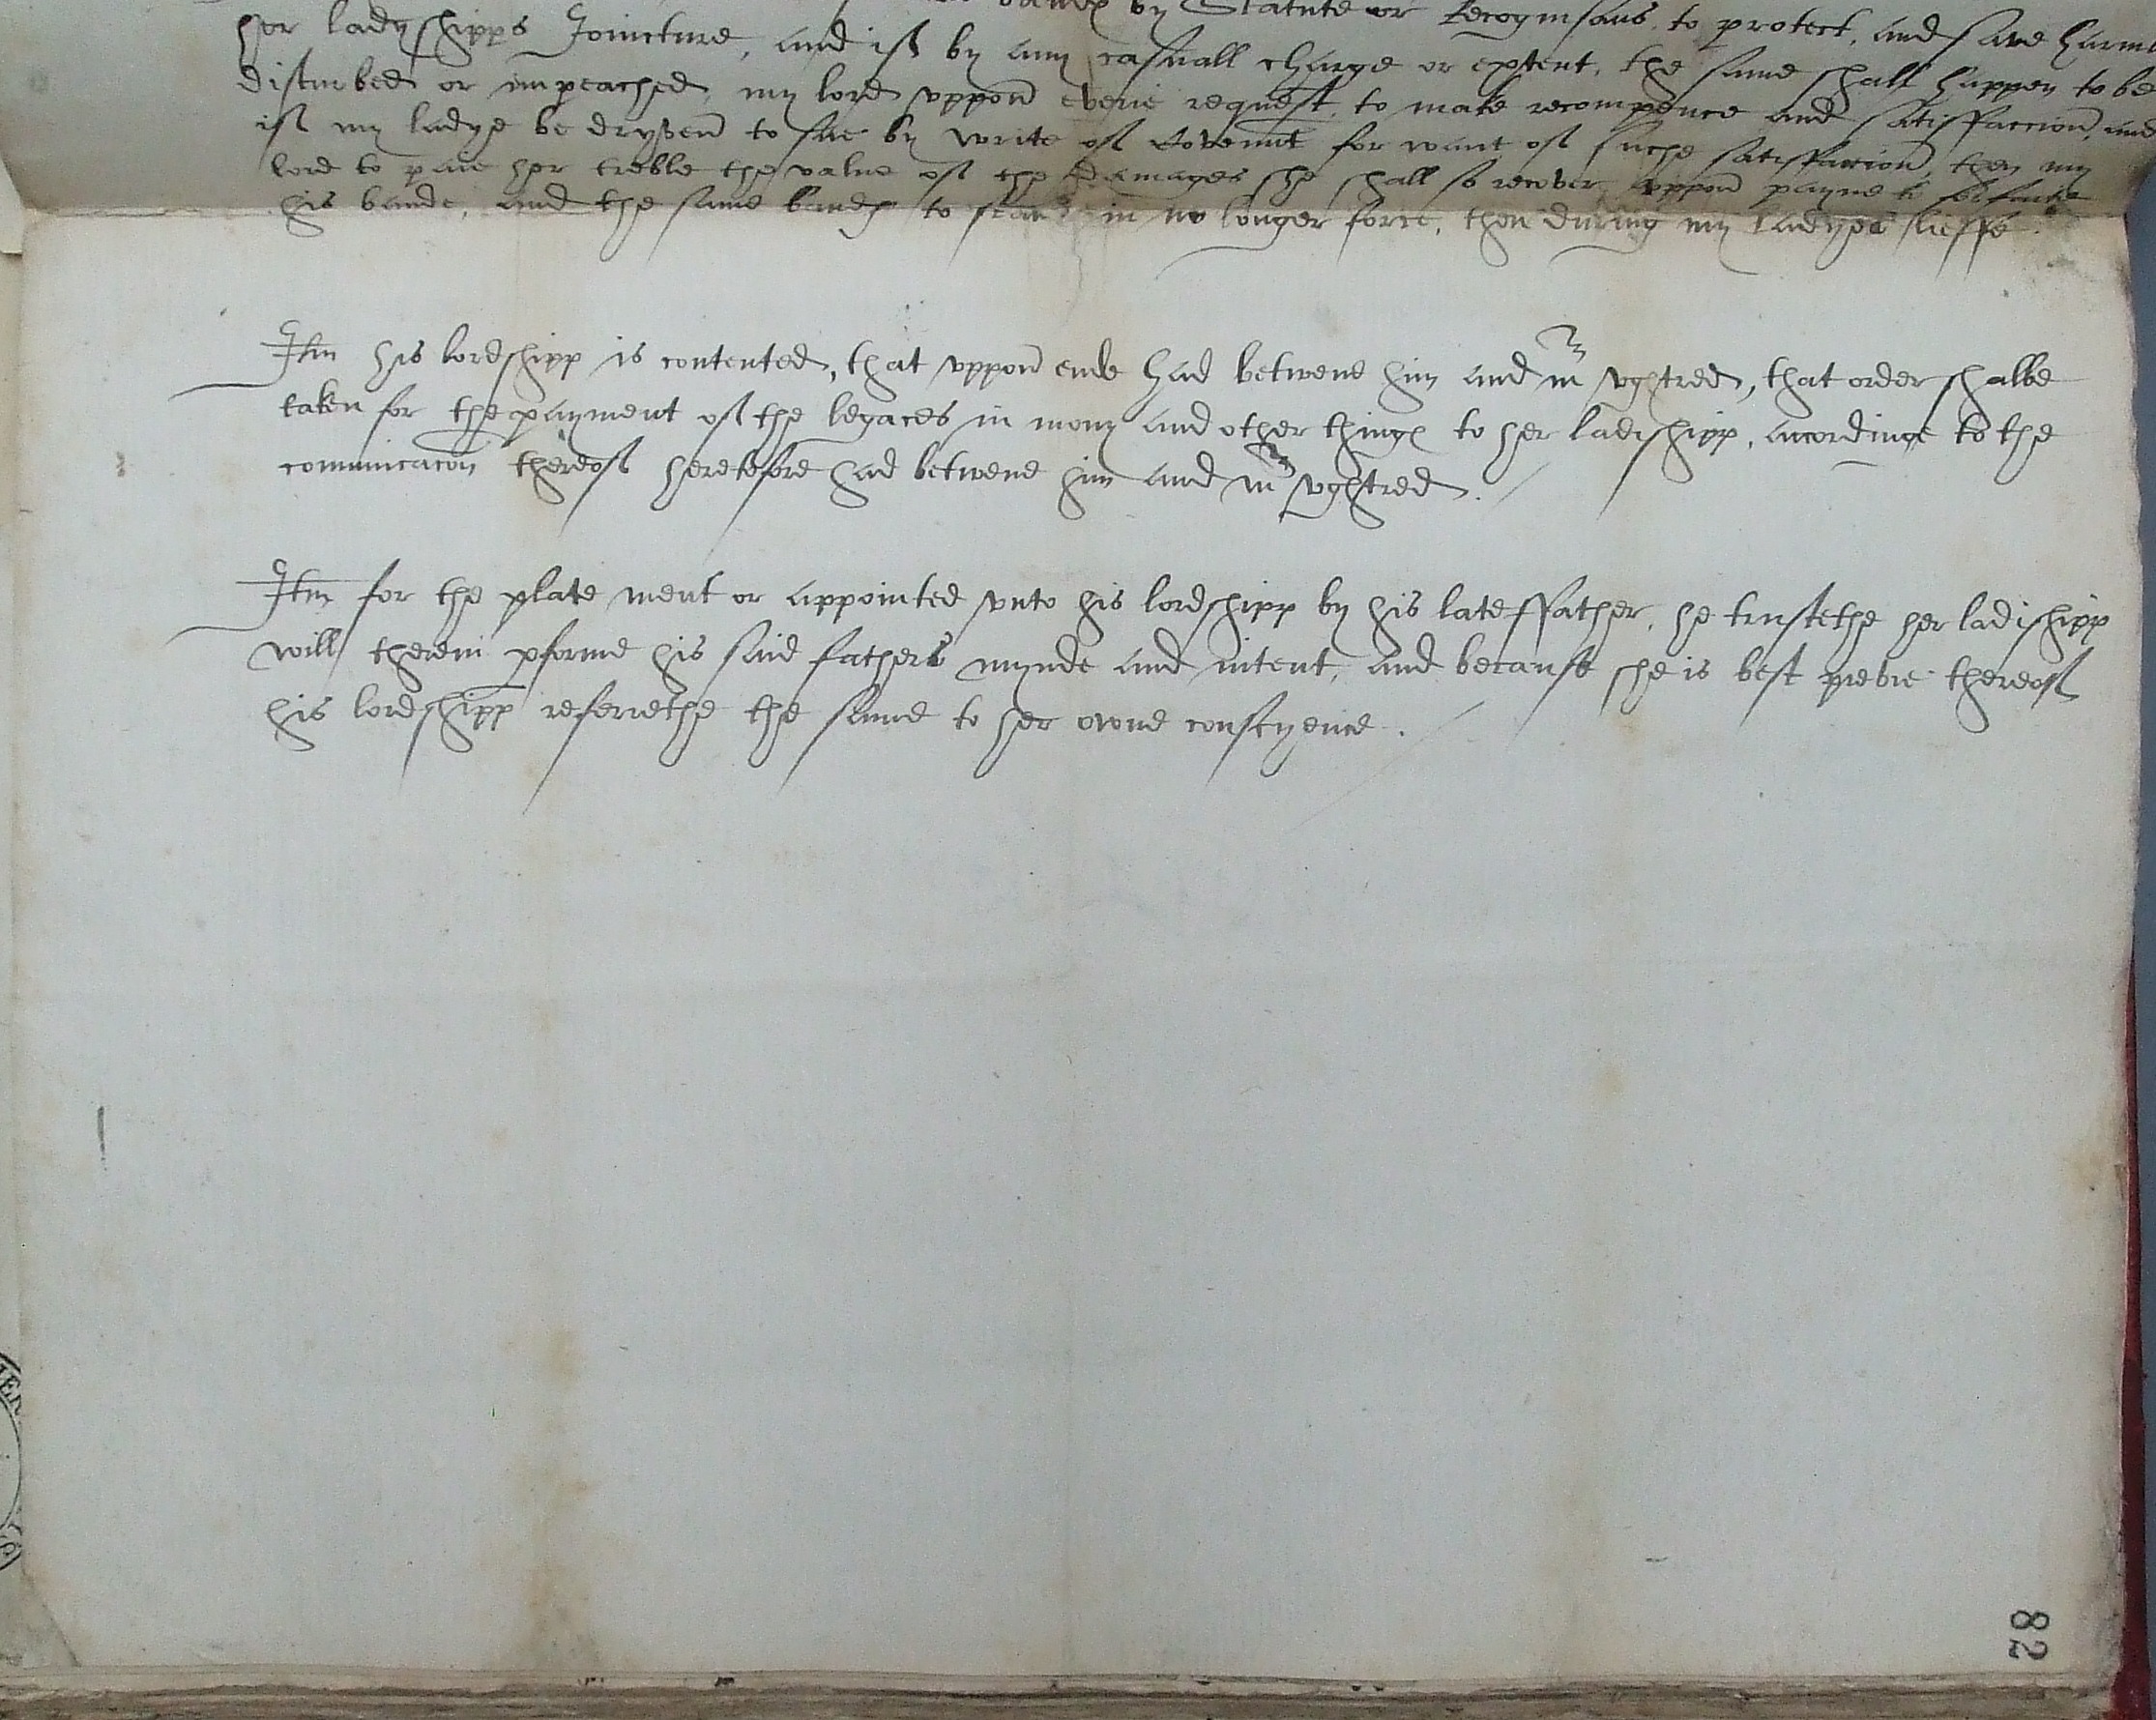 by Statute or Recognisans, to protect, and save harml
her ladyshipps Joincture, and if by any casuall charge or extent, the same shall happen to be
disturbed or impeached, my lord uppon everie request, to make recompence and satisffaccion, and
if my ladye be dryven to sue by write of Covennt for want of suche satisffaccion, then my
lord to paie her treble the value of the damages she shall so recover uppon payne to forfaite
his bande, and the same bandes to stand in no longer force, then during my ladyes lieffe.
Itm his lordshipp is contented, that uppon ende had betwene him and mr ughtred, that order shalbe
taken for the payment of the legaces in mony and other thinges to her ladishipp, acordinge to the
comunicacon thereof heretofore had betwene him and mr ughtred.
Itm for the plate ment or appointed unto his lordshipp by his late ffather, he trustethe her ladishipp
will therein pforme his said fathers mynde and intent, and because she is best previe thereof
his lordshipp referrethe the same to her owne conscyence.
82